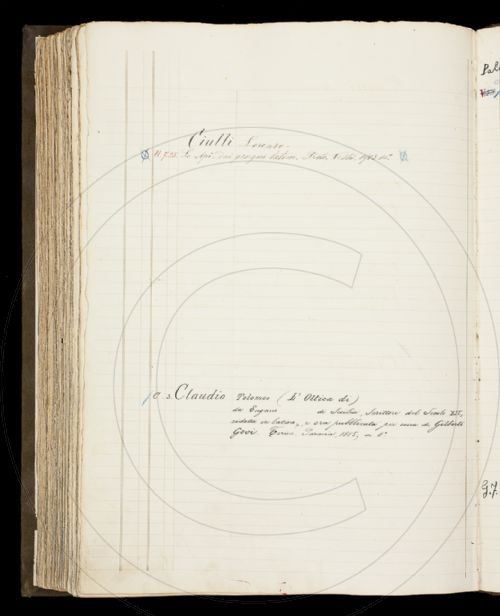 Ciulli Lorenzo.
Le Api
Prato
1903 in
O 2. Claudio Tolomeo (L'Ottica di)
da Eugenio di Sicilia, Scrittore del Secolo XII,
ridotta in latino, e ora pubblicata per cura di Gilberto
Govi. Torino, Paravia, 1885, in 8°
Pal
G.7.